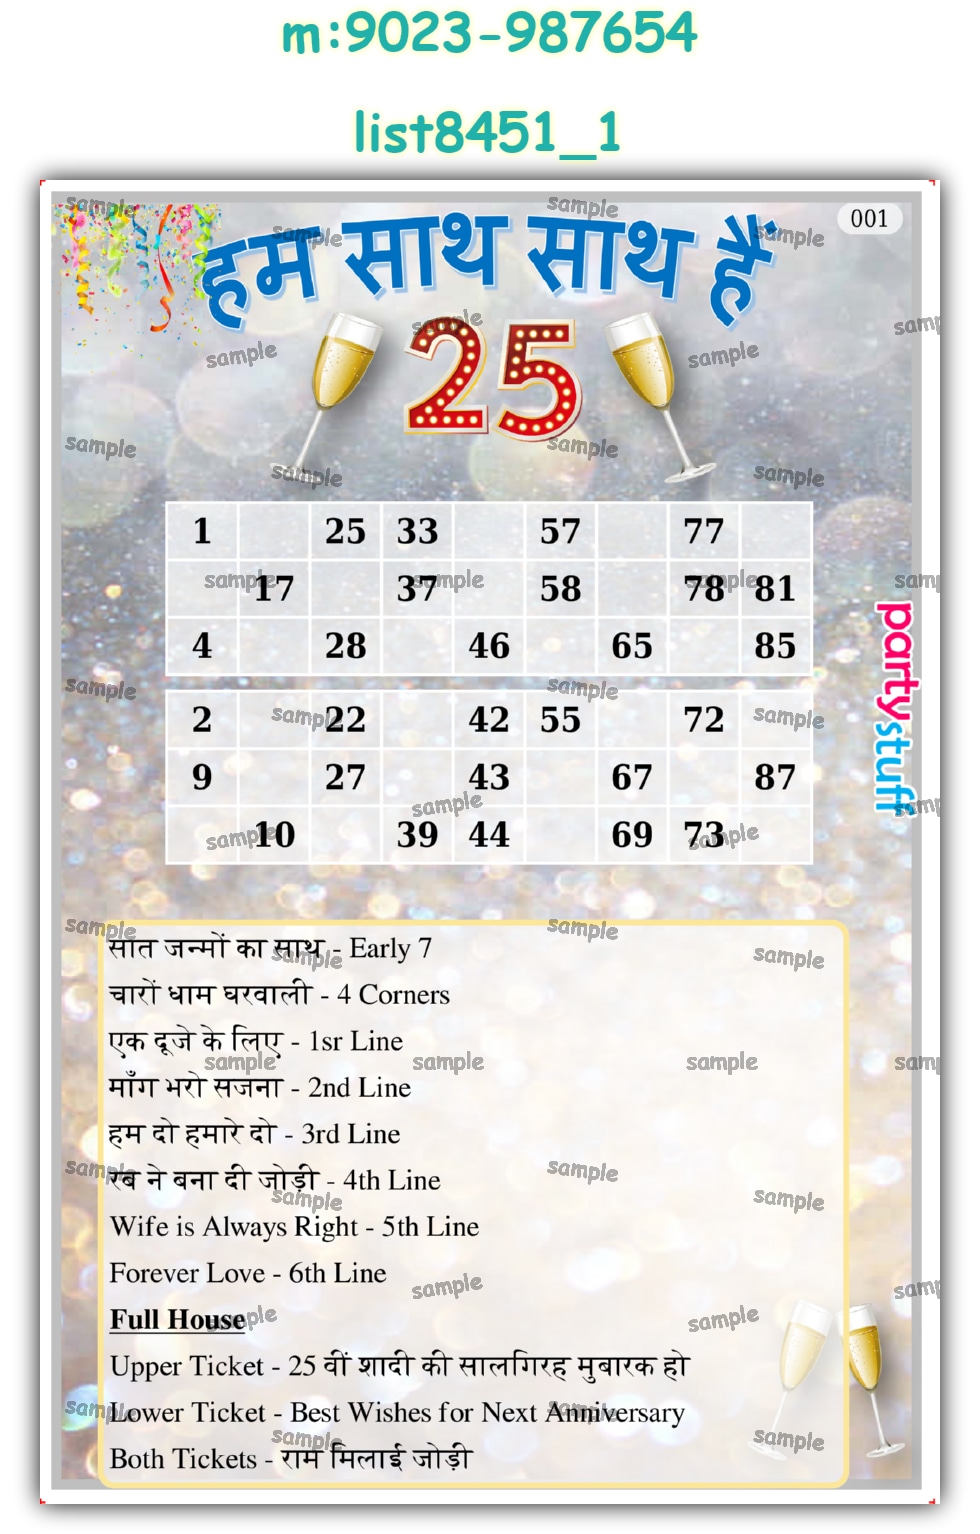 m:9023-987654
list8451_1
001
हम साथ साथ हैं
25
1 25 33 57 77
17 37 58 78 81
4 28 46 65 85
2 22 42 55 72
9 27 43 67 87
10 39 44 69 73
partystuff
सात जन्मों का साथ - Early 7
चारों धाम घरवाली - 4 Corners
एक दूजे के लिए - 1sr Line
माँग भरो सजना - 2nd Line
हम दो हमारे दो - 3rd Line
रब ने बना दी जोड़ी - 4th Line
Wife is Always Right - 5th Line
Forever Love - 6th Line
Full House
Upper Ticket - 25 वीं शादी की सालगिरह मुबारक हो
Lower Ticket - Best Wishes for Next Anniversary
Both Tickets - राम मिलाई जोड़ी
sample